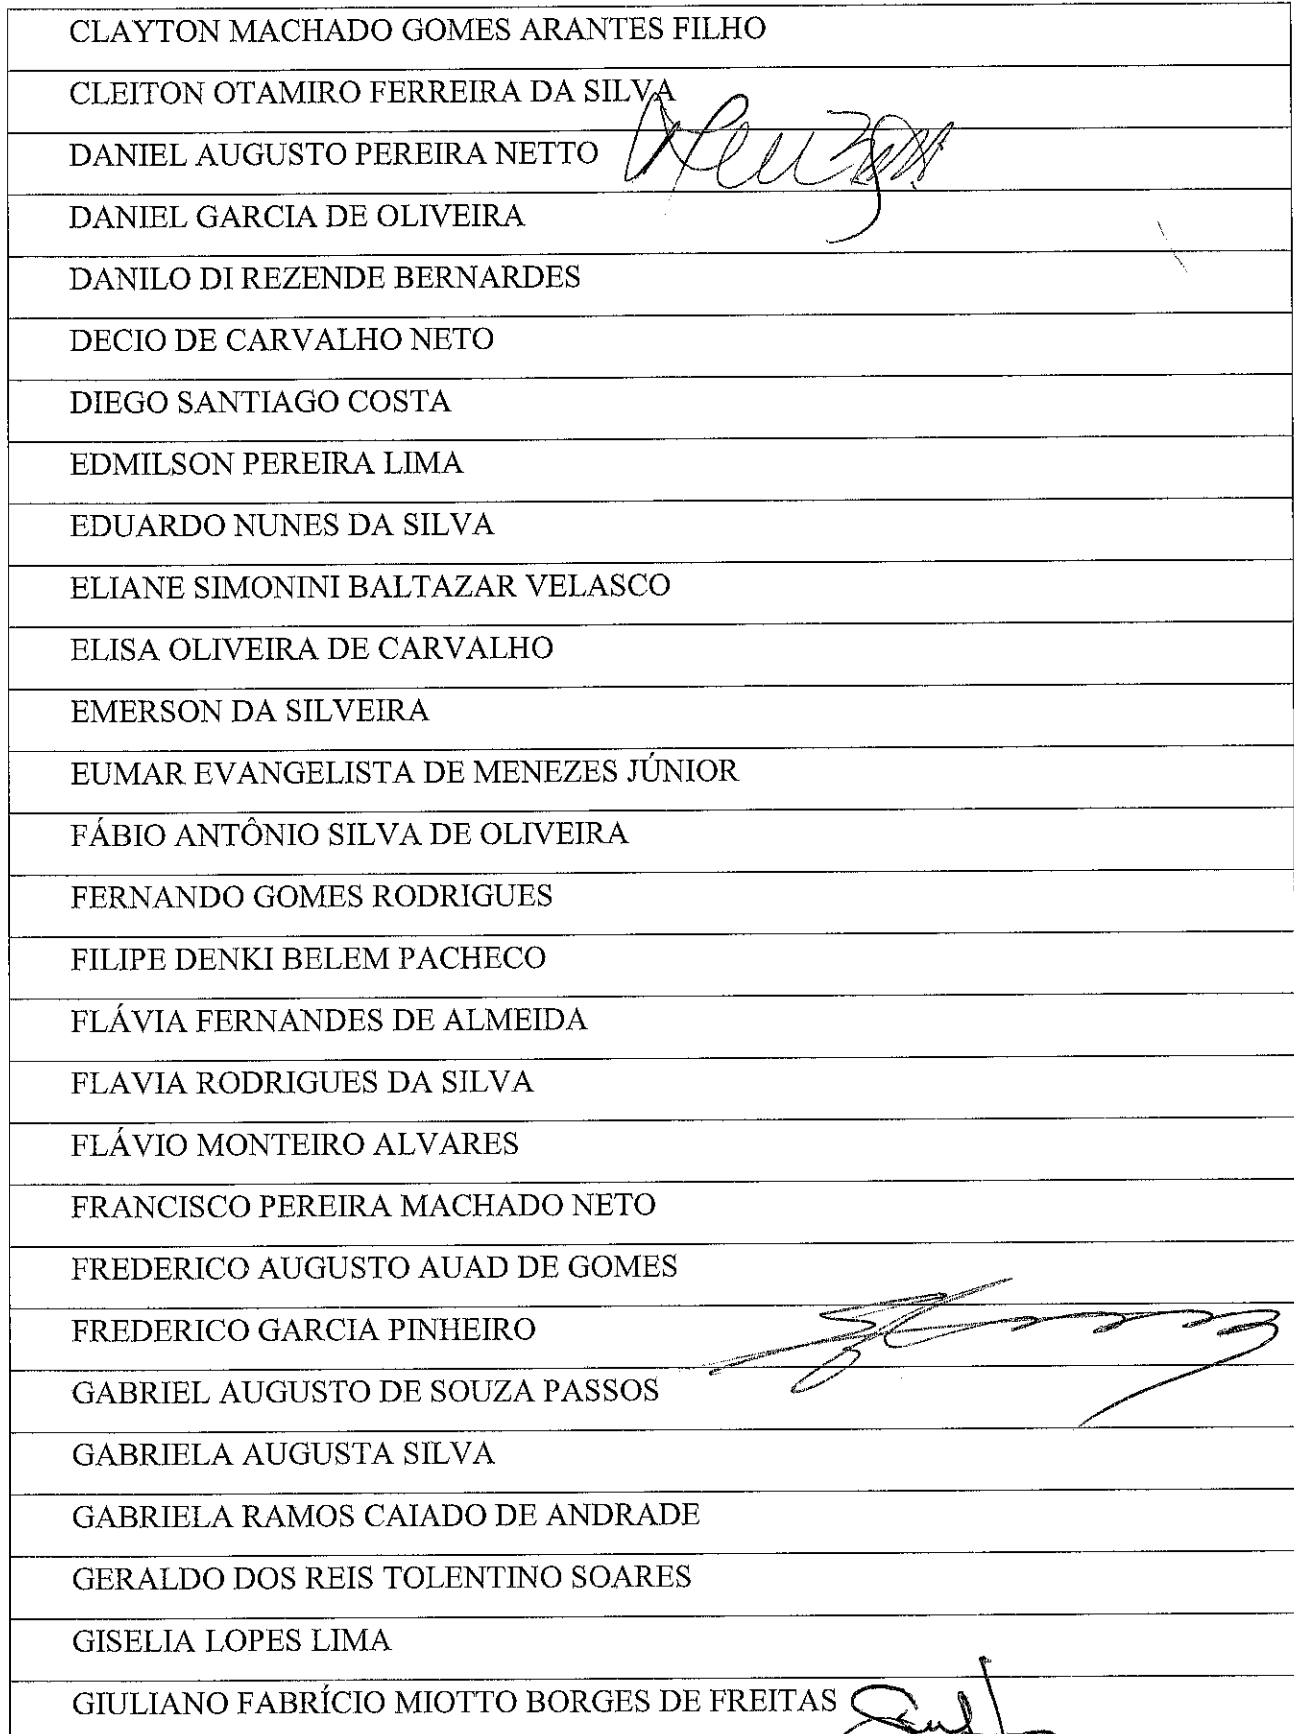 CLAYTON MACHADO GOMES ARANTES FILHO
CLEITON OTAMIRO FERREIRA DA SILVA
DANIEL AUGUSTO PEREIRA NETTO
DANIEL GARCIA DE OLIVEIRA
DANILO DI REZENDE BERNARDES
DECIO DE CARVALHO NETO
DIEGO SANTIAGO COSTA
EDMILSON PEREIRA LIMA
EDUARDO NUNES DA SILVA
ELIANE SIMONINI BALTAZAR VELASCO
ELISA OLIVEIRA DE CARVALHO
EMERSON DA SILVEIRA
EUMAR EVANGELISTA DE MENEZES JÚNIOR
FÁBIO ANTÔNIO SILVA DE OLIVEIRA
FERNANDO GOMES RODRIGUES
FILIPE DENKI BELEM PACHECO
FLÁVIA FERNANDES DE ALMEIDA
FLAVIA RODRIGUES DA SILVA
FLÁVIO MONTEIRO ALVARES
FRANCISCO PEREIRA MACHADO NETO
FREDERICO AUGUSTO AUAD DE GOMES
FREDERICO GARCIA PINHEIRO
GABRIEL AUGUSTO DE SOUZA PASSOS
GABRIELA AUGUSTA SILVA
GABRIELA RAMOS CAIADO DE ANDRADE
GERALDO DOS REIS TOLENTINO SOARES
GISELIA LOPES LIMA
GIULIANO FABRÍCIO MIOTTO BORGES DE FREITAS